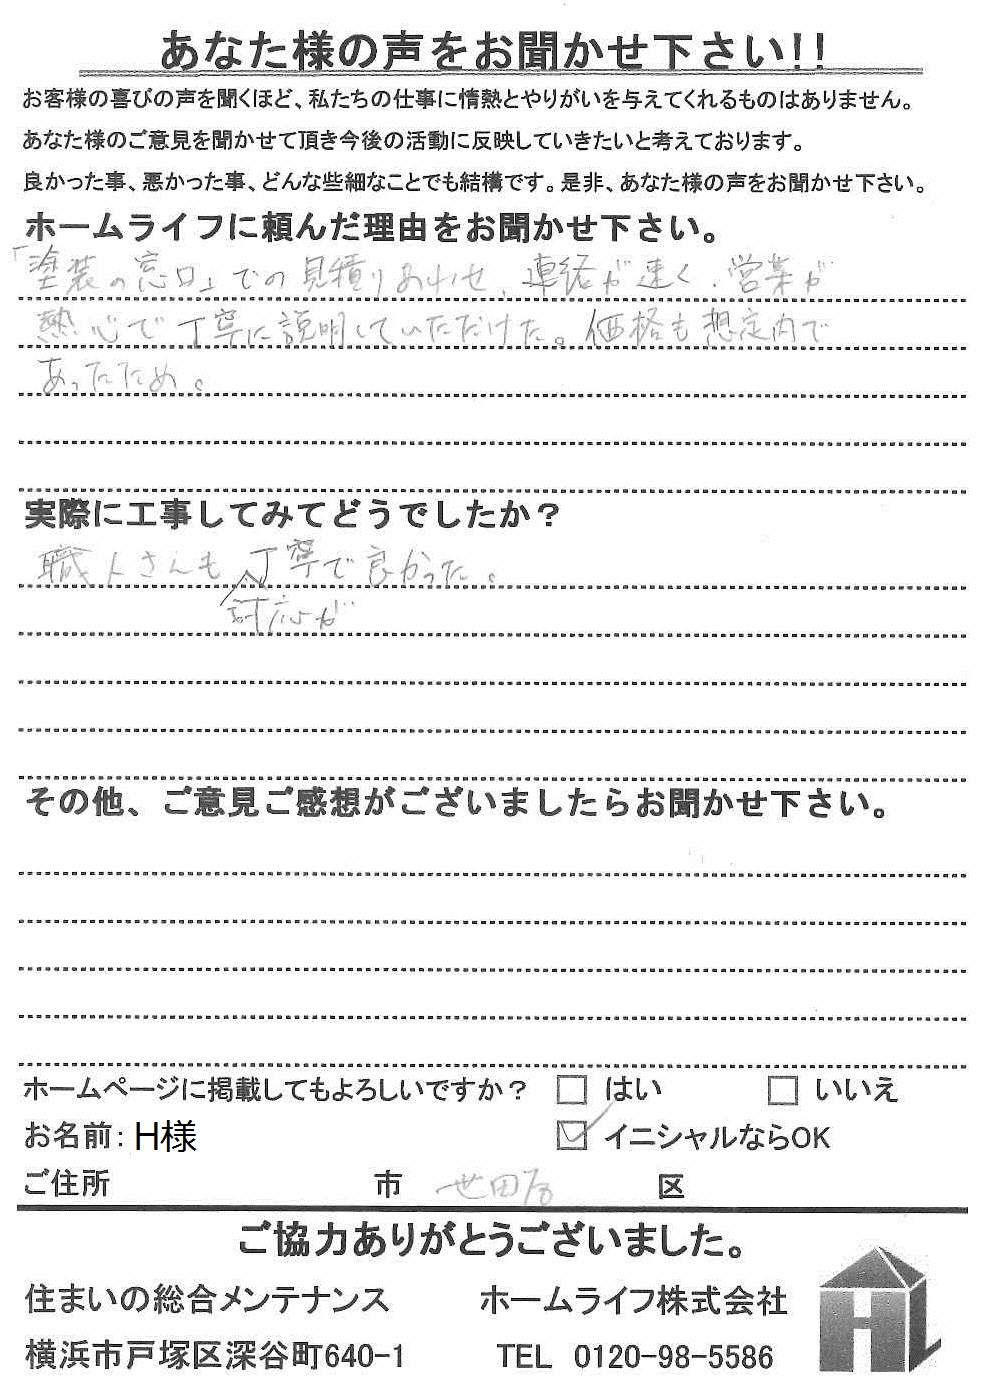 あなた様の声をお聞かせ下さい!!
お客様の喜びの声を聞くほど、私たちの仕事に情熱とやりがいを与えてくれるものはありません。
あなた様のご意見を聞かせて頂き今後の活動に反映していきたいと考えております。
良かった事、悪かった事、どんな些細なことでも結構です。是非、あなた様の声をお聞かせ下さい。
ホームライフに頼んだ理由をお聞かせ下さい。
「塗装の窓口」での見積りあわせ、連絡が速く、営業が
熱心で丁寧に説明していただけた。価格も想定内で
あったため。
実際に工事してみてどうでしたか?
職人さんも丁寧で良かった。
対応が
その他、ご意見ご感想がございましたらお聞かせ下さい。
ホームページに掲載してもよろしいですか? はい いいえ
お名前: H様 イニシャルならOK
ご住所 市 世田谷 区
ご協力ありがとうございました。
住まいの総合メンテナンス ホームライフ株式会社
横浜市戸塚区深谷町640-1 TEL 0120-98-5586
HL